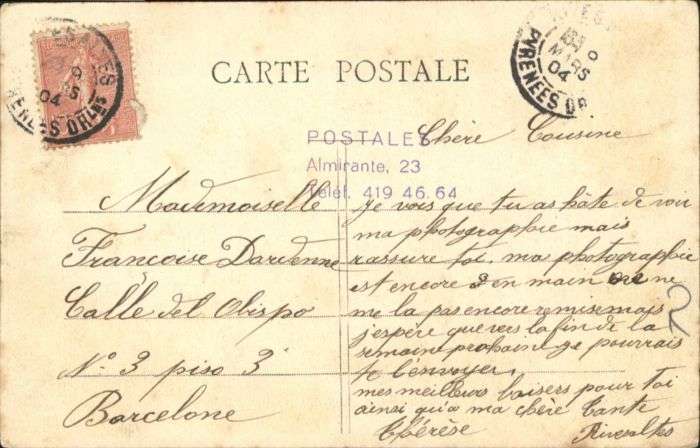 CARTE POSTALE
MARS
04
PYRENEES OR
04
POSTALES
Almirante, 23
Teléf. 419 46 64
Chère Cousine
Mademoiselle
Françoise Dardenne
Calle del Obispo
N° 3 piso 3
Barcelone
je vois que tu as hâte de voir
ma photographie mais
rassure toi, ma photographie
est encore en main on ne
me la pas encore remise mais
j'espère que vers la fin de la
semaine prochaine je pourrais
te l'envoyer,
mes meilleurs baisers pour toi
ainsi qu'a ma chère tante
Thérèse
Rivesaltes
2